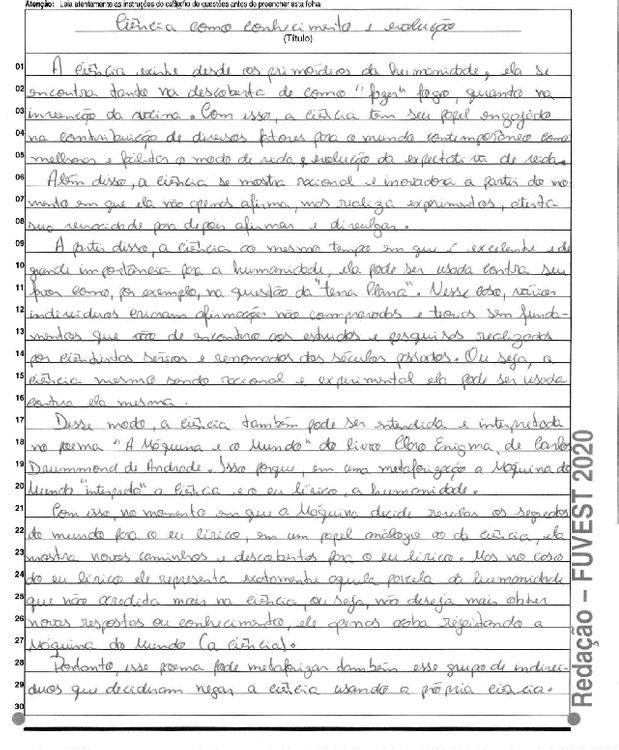 Atenção: Leia atentamente as instruções do caderno de questões antes de preencher esta folha.
Ciência como conhecimento e evolução
(Título)
01 A ciência existe desde os primórdios da humanidade, ela se
02 encontra tanto na descoberta de como "fazer" fogo, quanto na
03 invenção da vacina. Com isso, a ciência tem seu papel engajado
04 na contribuição de diversos fatores para o mundo contemporâneo como
05 melhorar e facilitar o modo de vida e evolução da expectativa de vida.
06 Além disso, a ciência se mostra racional e inovadora a partir do mo-
07 mento em que ela não apenas afirma, mas realiza experimentos, atesta
08 sua veracidade para depois afirmar e divulgar.
09 A partir disso, a ciência ao mesmo tempo em que é excelente e de
10 grande importância para a humanidade, ela pode ser usada contra seu
11 favor como, por exemplo, na questão da "terra Plana". Nesse caso, vários
12 indivíduos criaram afirmações não comprovadas e teorias sem funda-
13 mentos que vão de encontro aos estudos e pesquisas realizados
14 por cientistas sérios e renomados dos séculos passados. Ou seja, a
15 ciência mesmo sendo racional e experimental ela pode ser usada
16 contra ela mesma.
17 Desse modo, a ciência também pode ser entendida e interpretada
18 no poema "A Máquina e o Mundo" do livro Claro Enigma, de Carlos
19 Drummond de Andrade. Isso porque, em uma metaforização a Máquina do
20 Mundo "interpreta" a Ciência e o eu lírico, a humanidade.
21 Com isso, no momento em que a Máquina decide revelar os segredos
22 do mundo para o eu lírico, em um papel análogo ao da ciência, ela
23 mostra novos caminhos e descobertas para o eu lírico. Mas no caso
24 do eu lírico ele representa exatamente aquela parcela da humanidade
25 que não acredita mais na ciência, ou seja, não deseja mais obter
26 novas respostas ou conhecimento, ele apenas acaba rejeitando a
27 Máquina do Mundo (a ciência).
28 Portanto, esse poema pode metaforizar também esse grupo de indiví-
29 duos que decidiram negar a ciência usando a própria ciência.
30
Redação – FUVEST 2020